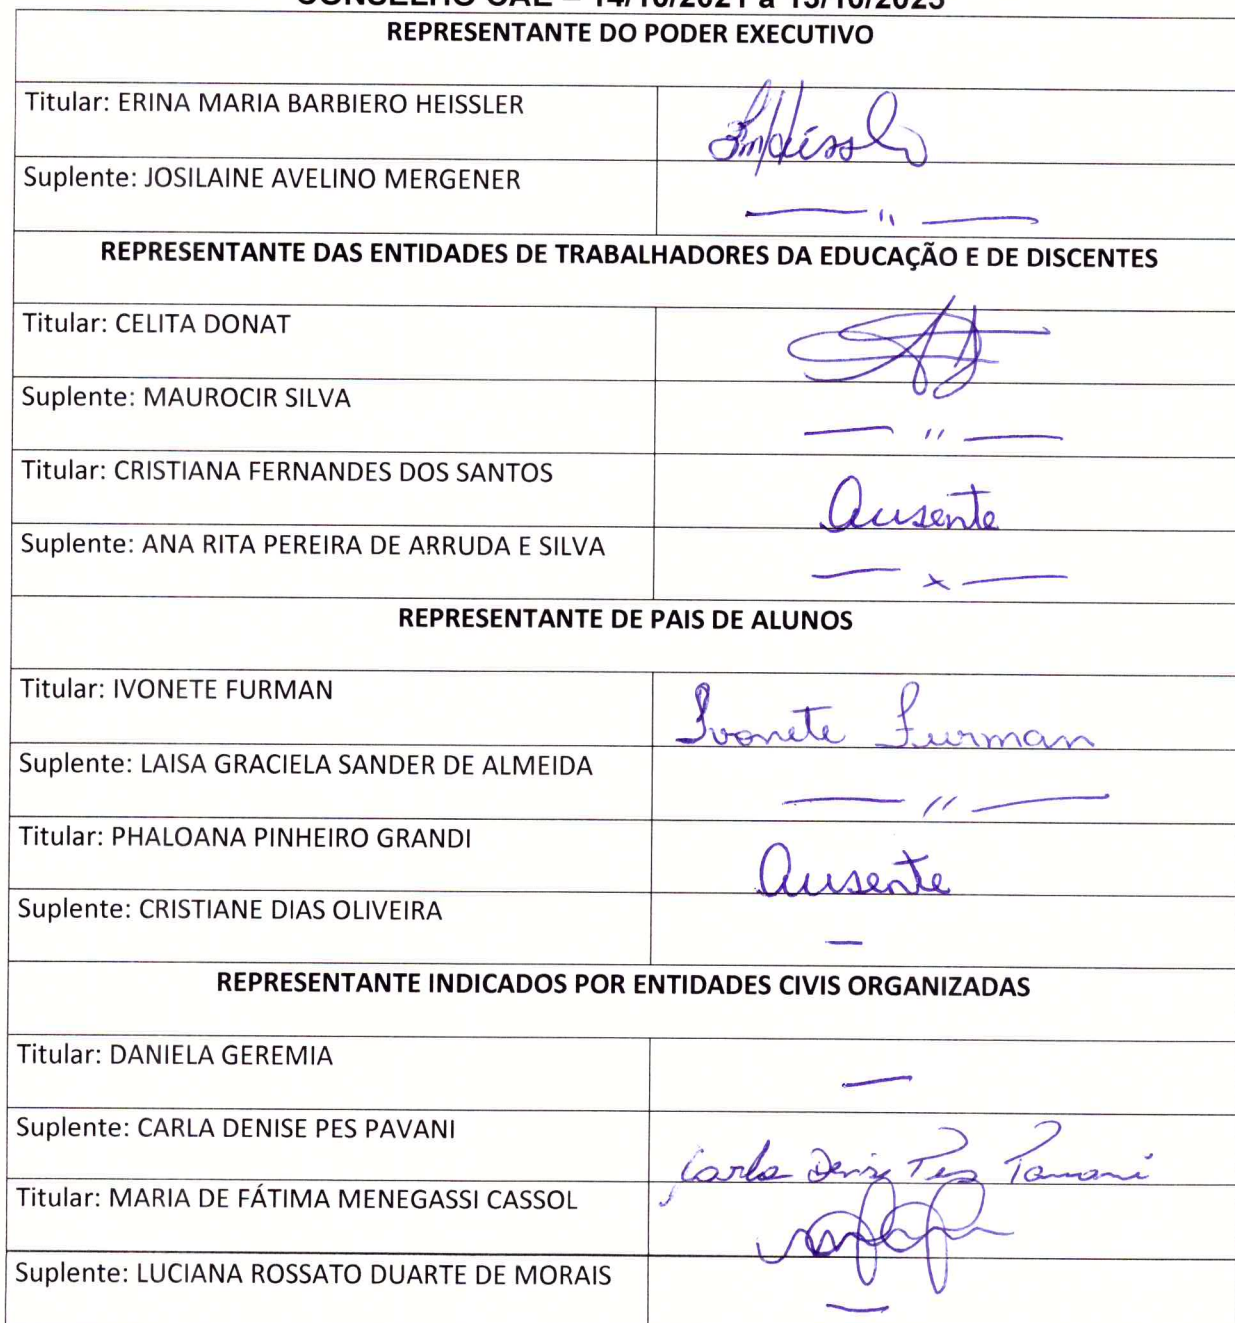 CONSELHO CAE – 14/10/2021 a 13/10/2025
REPRESENTANTE DO PODER EXECUTIVO
Titular: ERINA MARIA BARBIERO HEISSLER
Suplente: JOSILAINE AVELINO MERGENER
— " —
REPRESENTANTE DAS ENTIDADES DE TRABALHADORES DA EDUCAÇÃO E DE DISCENTES
Titular: CELITA DONAT
Suplente: MAUROCIR SILVA
— " —
Titular: CRISTIANA FERNANDES DOS SANTOS
Ausente
Suplente: ANA RITA PEREIRA DE ARRUDA E SILVA
— x —
REPRESENTANTE DE PAIS DE ALUNOS
Titular: IVONETE FURMAN
Ivonete Furman
Suplente: LAISA GRACIELA SANDER DE ALMEIDA
— " —
Titular: PHALOANA PINHEIRO GRANDI
Ausente
Suplente: CRISTIANE DIAS OLIVEIRA
—
REPRESENTANTE INDICADOS POR ENTIDADES CIVIS ORGANIZADAS
Titular: DANIELA GEREMIA
—
Suplente: CARLA DENISE PES PAVANI
Carla Denise Pes Pavani
Titular: MARIA DE FÁTIMA MENEGASSI CASSOL
Suplente: LUCIANA ROSSATO DUARTE DE MORAIS
—